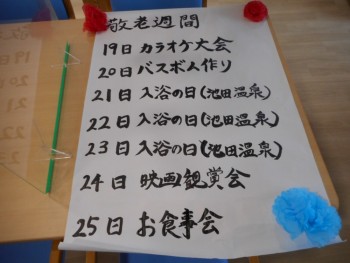 敬老週間
19日 カラオケ大会
20日 バスボム作り
21日 入浴の日(池田温泉)
22日 入浴の日(池田温泉)
23日 入浴の日(池田温泉)
24日 映画観賞会
25日 お食事会